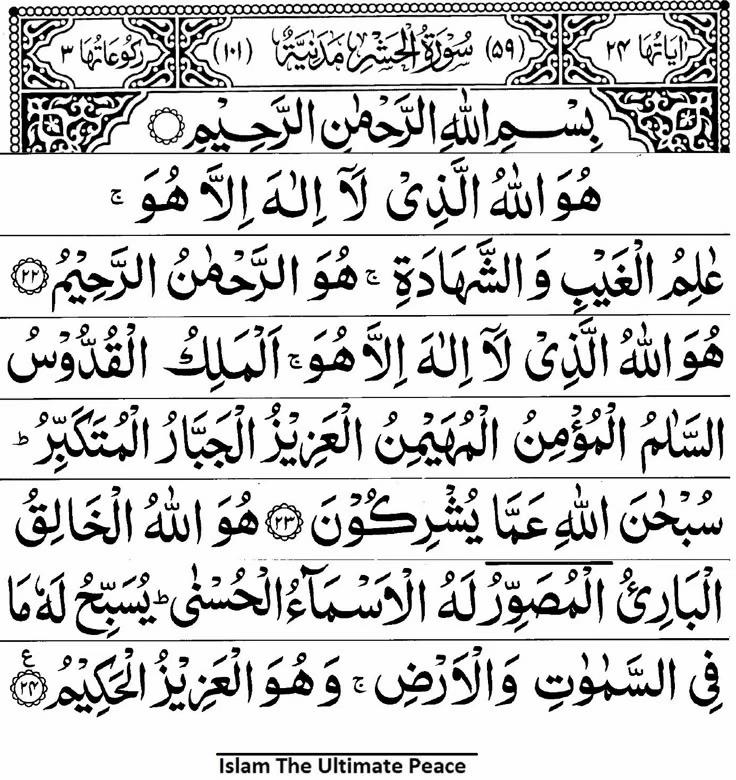 اٰیاتها ۲۴ (۵۹) سُوْرَةُ الْحَشْرِ مَدَنِیَّةٌ (۱۰۱) رکوعاتها ۳
بِسْمِ اللّٰهِ الرَّحْمٰنِ الرَّحِیْمِ
هُوَ اللّٰهُ الَّذِیْ لَاۤ اِلٰهَ اِلَّا هُوَ ۚ
عٰلِمُ الْغَیْبِ وَ الشَّهَادَةِ ۚ هُوَ الرَّحْمٰنُ الرَّحِیْمُ ﴿۲۲﴾
هُوَ اللّٰهُ الَّذِیْ لَاۤ اِلٰهَ اِلَّا هُوَ ۚ اَلْمَلِكُ الْقُدُّوْسُ
السَّلٰمُ الْمُؤْمِنُ الْمُهَیْمِنُ الْعَزِیْزُ الْجَبَّارُ الْمُتَكَبِّرُ ؕ
سُبْحٰنَ اللّٰهِ عَمَّا یُشْرِكُوْنَ ﴿۲۳﴾ هُوَ اللّٰهُ الْخَالِقُ
الْبَارِئُ الْمُصَوِّرُ لَهُ الْاَسْمَآءُ الْحُسْنٰی ؕ یُسَبِّحُ لَهٗ مَا
فِی السَّمٰوٰتِ وَ الْاَرْضِ ۚ وَ هُوَ الْعَزِیْزُ الْحَكِیْمُ ﴿۲۴﴾ ع
Islam The Ultimate Peace